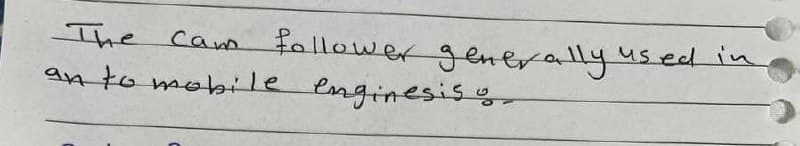 The cam follower generally used in
an to mobile enginesis :-